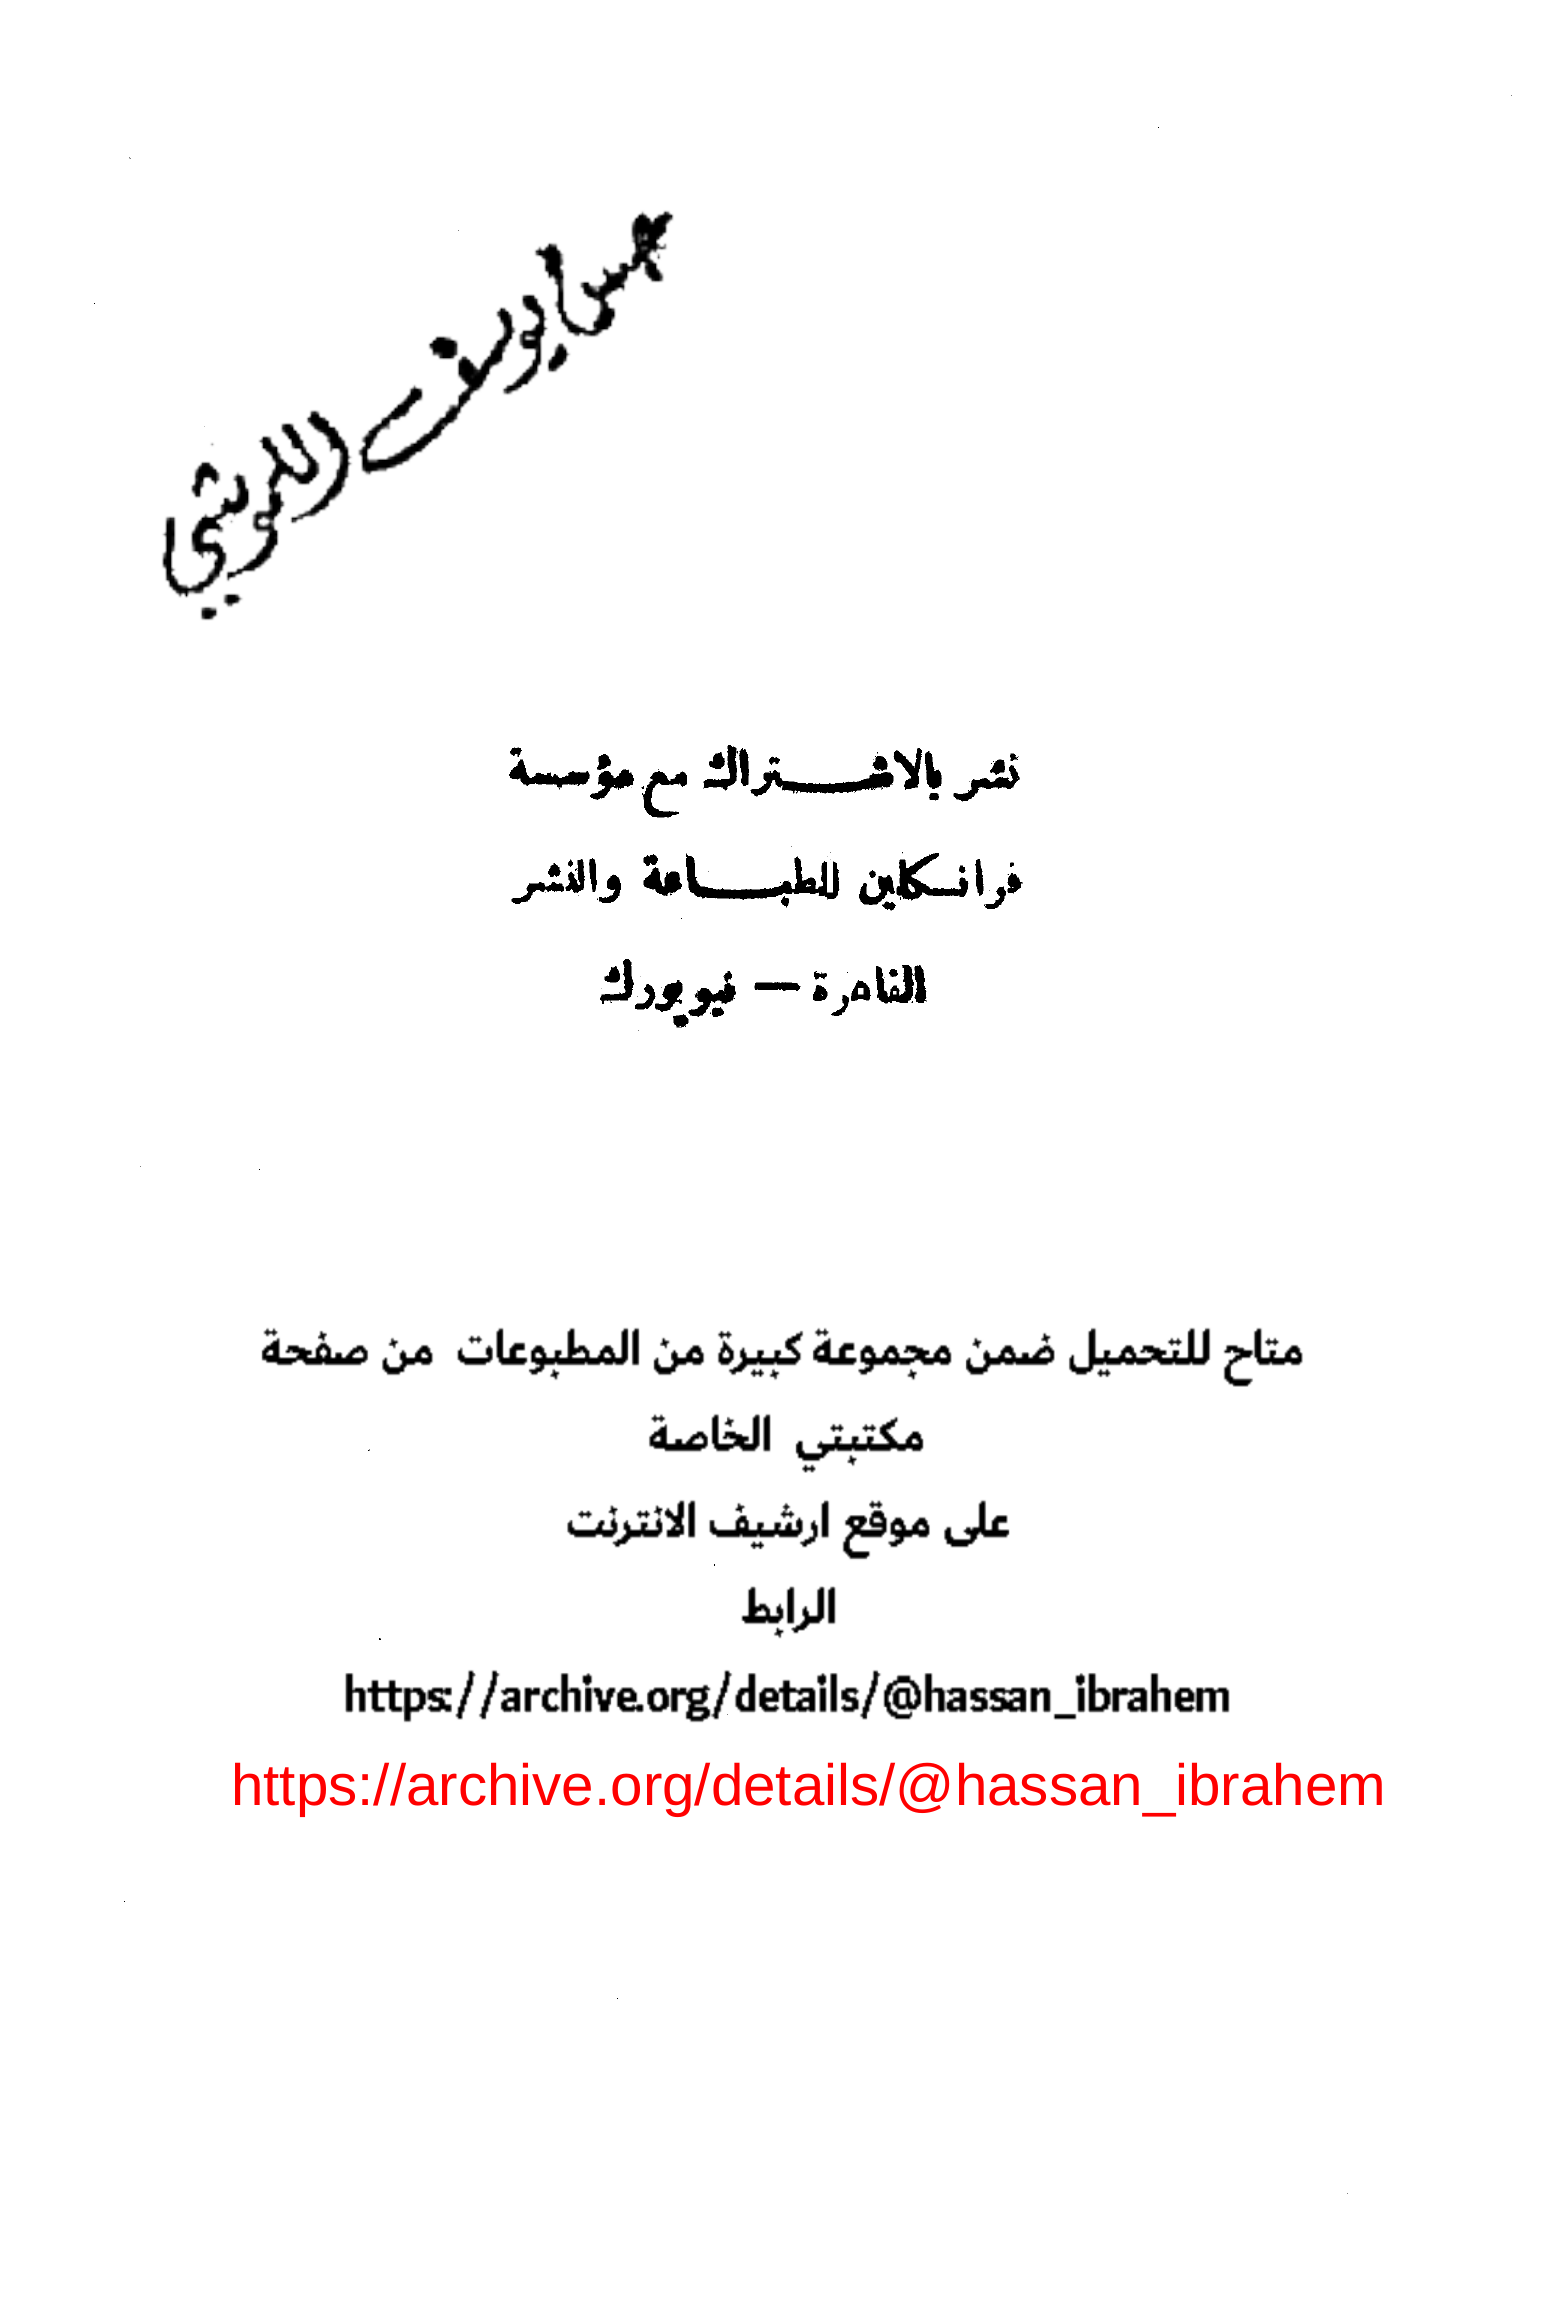 يوسف
نشر بالاشتراك مع مؤسسة
فرانكلين للطباعة والنشر
القاهرة — نيويورك
متاح للتحميل ضمن مجموعة كبيرة من المطبوعات من صفحة
مكتبتي الخاصة
على موقع ارشيف الانترنت
الرابط
https://archive.org/details/@hassan_ibrahem
https://archive.org/details/@hassan_ibrahem